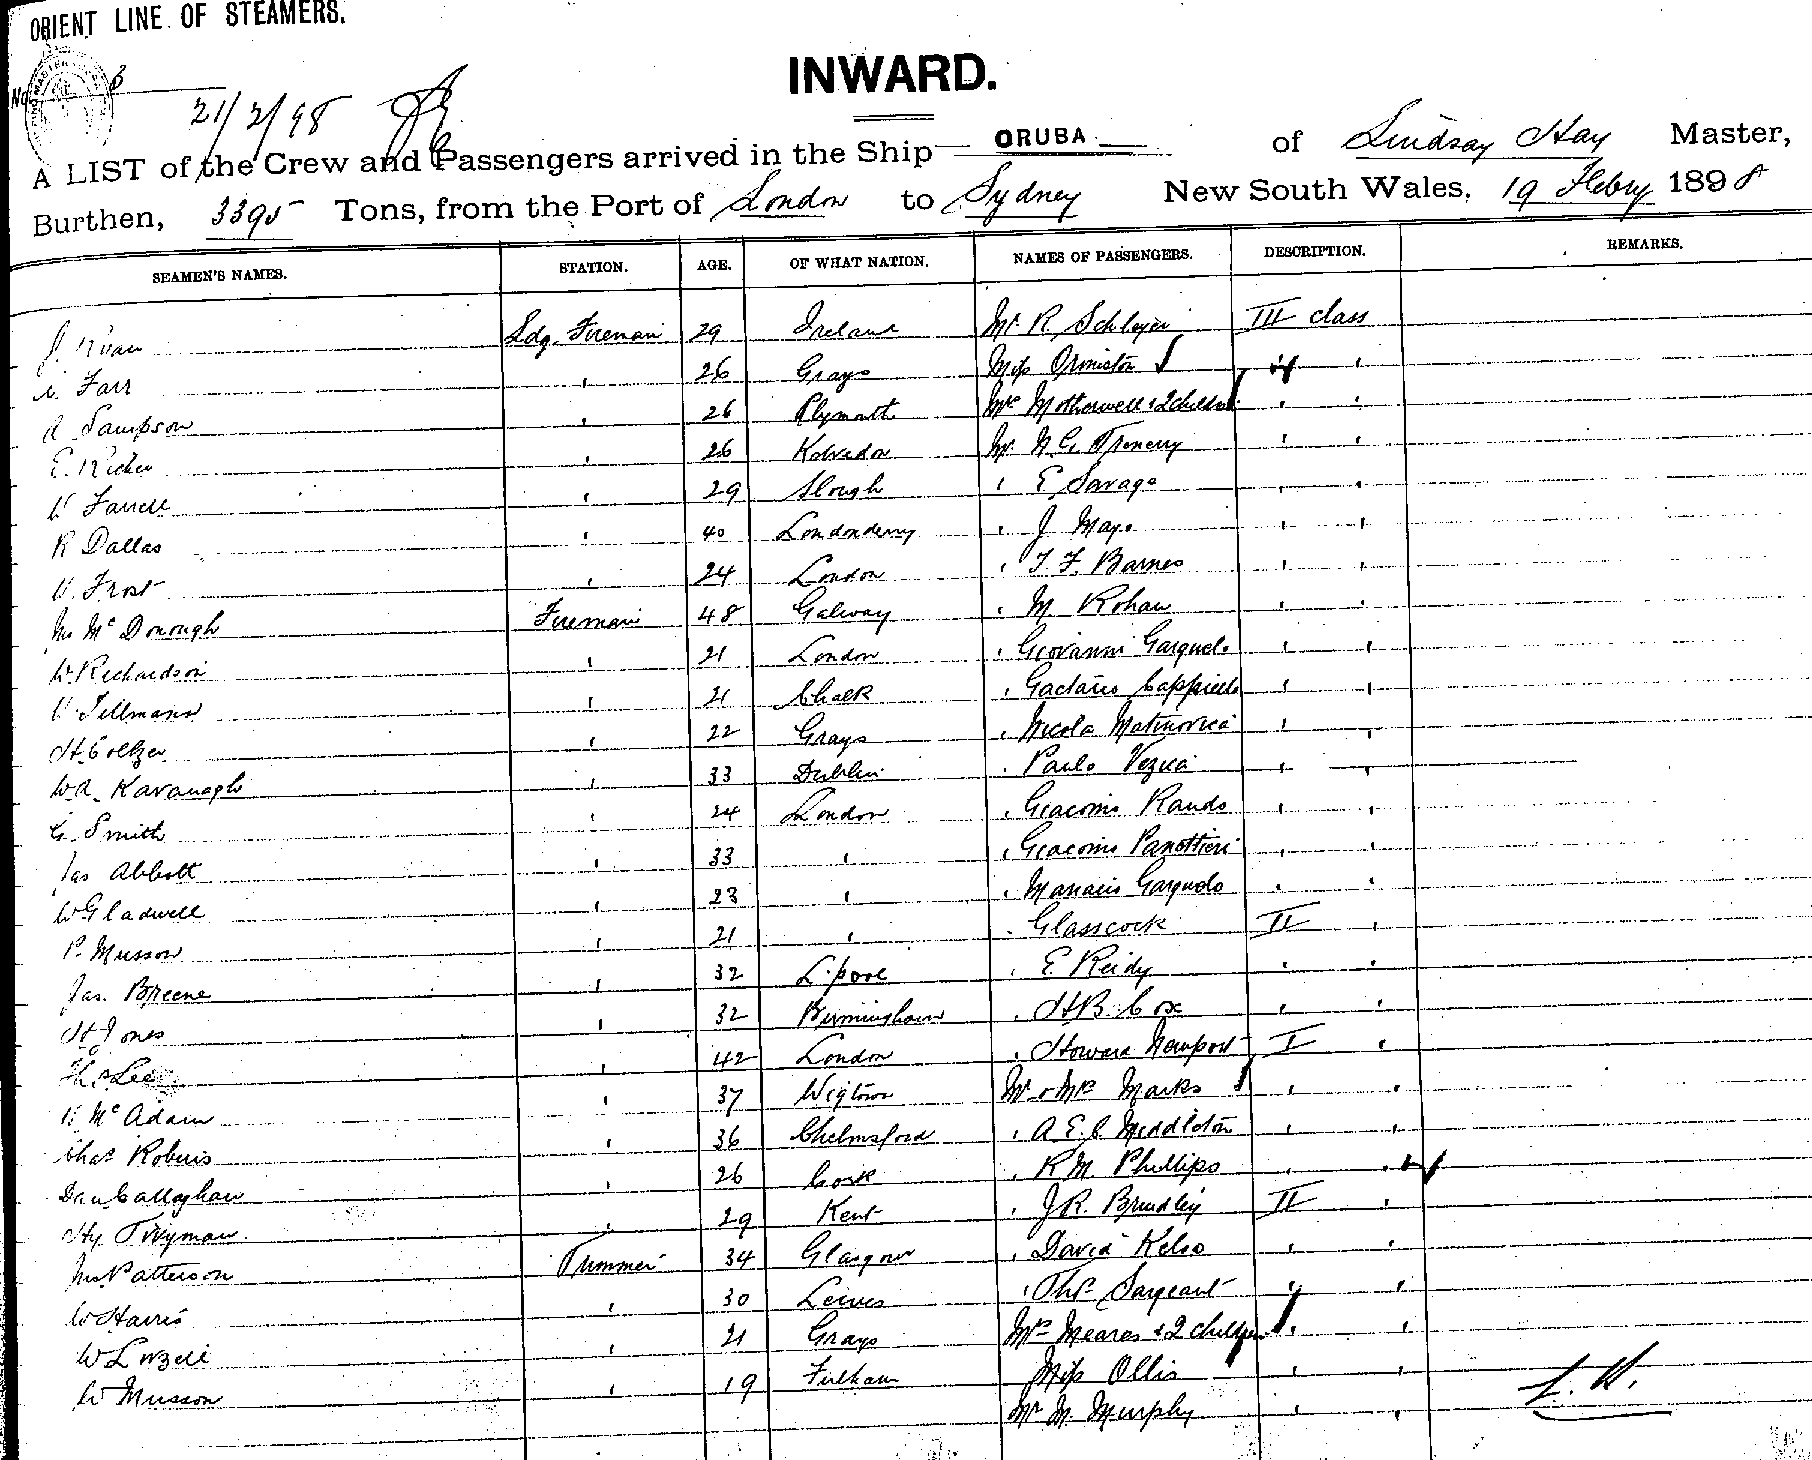 ORIENT LINE OF STEAMERS.
No. 3
INWARD.
21/2/98
A LIST of the Crew and Passengers arrived in the Ship ORUBA of Lindsay Hay Master,
Burthen, 3395 Tons, from the Port of London to Sydney New South Wales, 19 Febry 1898
SEAMEN'S NAMES. STATION. AGE. OF WHAT NATION. NAMES OF PASSENGERS. DESCRIPTION. REMARKS.
J. Ryan Ldg Fireman 29 Ireland Mr R Schleyer III class
Farr " 26 Grays Miss Ormiston " "
A Sampson " 26 Plymouth Mrs Motherwell & 2 children " "
E. " 26 Kelvedon Mr N. G. Trenerry " "
W Farrell " 29 Slough " E Savage " "
R Dallas " 40 Londonderry " J Mayo " "
W. Frost " 24 London " T. F. Barnes " "
Jno McDonough Fireman 48 Galway " M Rohan " "
W. Richardson " 21 London " Giovanni Garguolo " "
W Tillmans " 21 Chalk " Gaetano Cappiello " "
H. Coltzer " 22 Grays " Nicola Matinovica " "
W.A. Kavanagh " 33 Dublin " Paulo Vezua " "
G. Smith " 24 London " Giacomo Rando " "
Jas Abbott " 33 " " Giacomo Panottieri " "
W Gladwell " 23 " " Garguolo " "
P. Musson " 21 " " Glasscock II "
Jas. Breene " 32 L'pool " E. Reidy " "
H Jones " 32 Birmingham " H B Cox " "
Thos Lee " 42 London " Howard Newport I "
W McAdam " 37 Wigtown Mr & Mrs Marks " "
Chas Roberts " 36 Chelmsford " A. E. C. Middleton " "
Dan Callaghan " 26 Cork " R M. Phillips " "
Hy Twyman " 29 Kent " J R. Brindley II "
Jno Patterson Trimmer 34 Glasgow " David Kelso " "
W Harris " 30 Lewes " Thos Sargeant " "
W " 21 Grays Mrs Meares & 2 children " "
W Musson " 19 Fulham Miss Ollis " "
Mr M. Murphy " "
L. H.